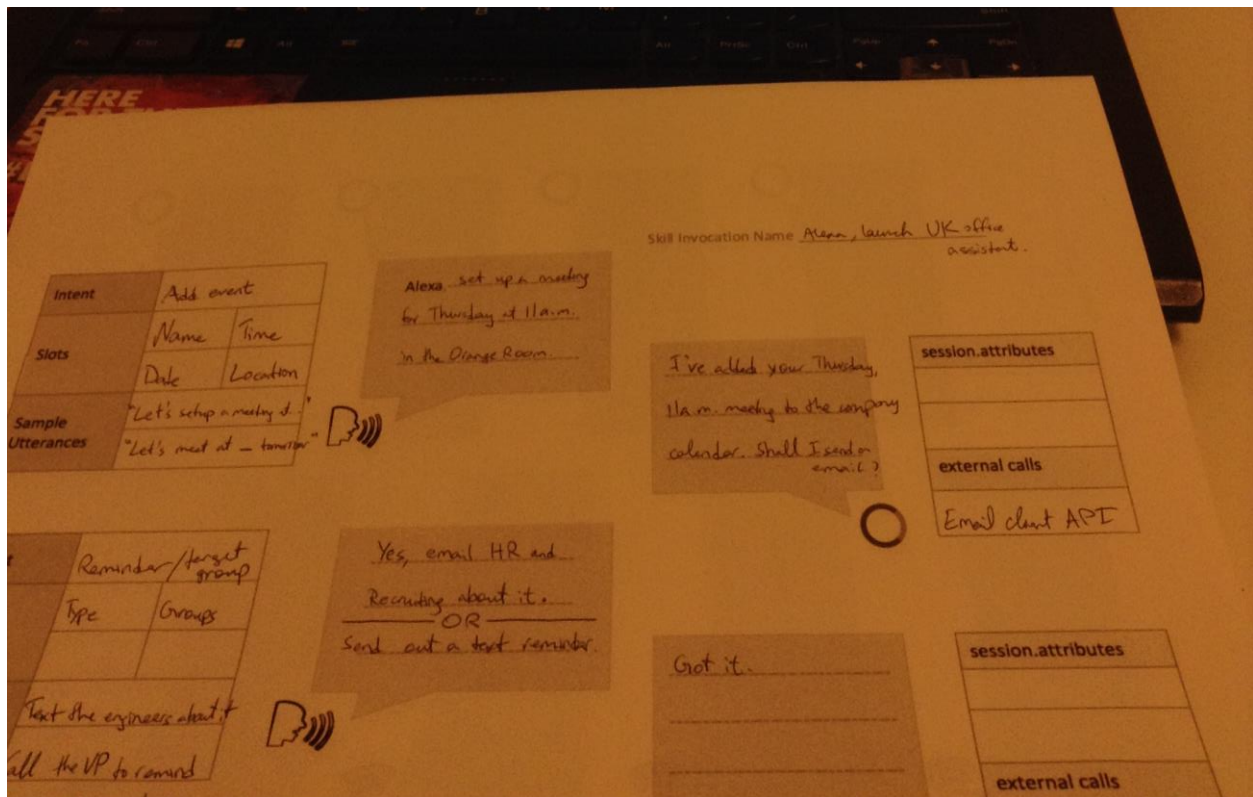 HERE
Alt
PrtSc
Ctrl
PgUp
Skill Invocation Name Alexa, launch UK office
assistant.
Intent
Add event
Slots
Name
Time
Date
Location
Sample
Utterances
"Let's setup a meeting at..."
"Let's meet at — tomorrow"
Alexa, set up a meeting
for Thursday at 11a.m.
in the Orange Room.
I've added your Thursday,
11a.m. meeting to the company
calendar. Shall I send a
email?
session.attributes
external calls
Email client API
Reminder/target
group
Type
Groups
Text the engineers about it
Call the VP to remind
Yes, email HR and
Recruiting about it.
OR
Send out a text reminder.
Got it.
session.attributes
external calls